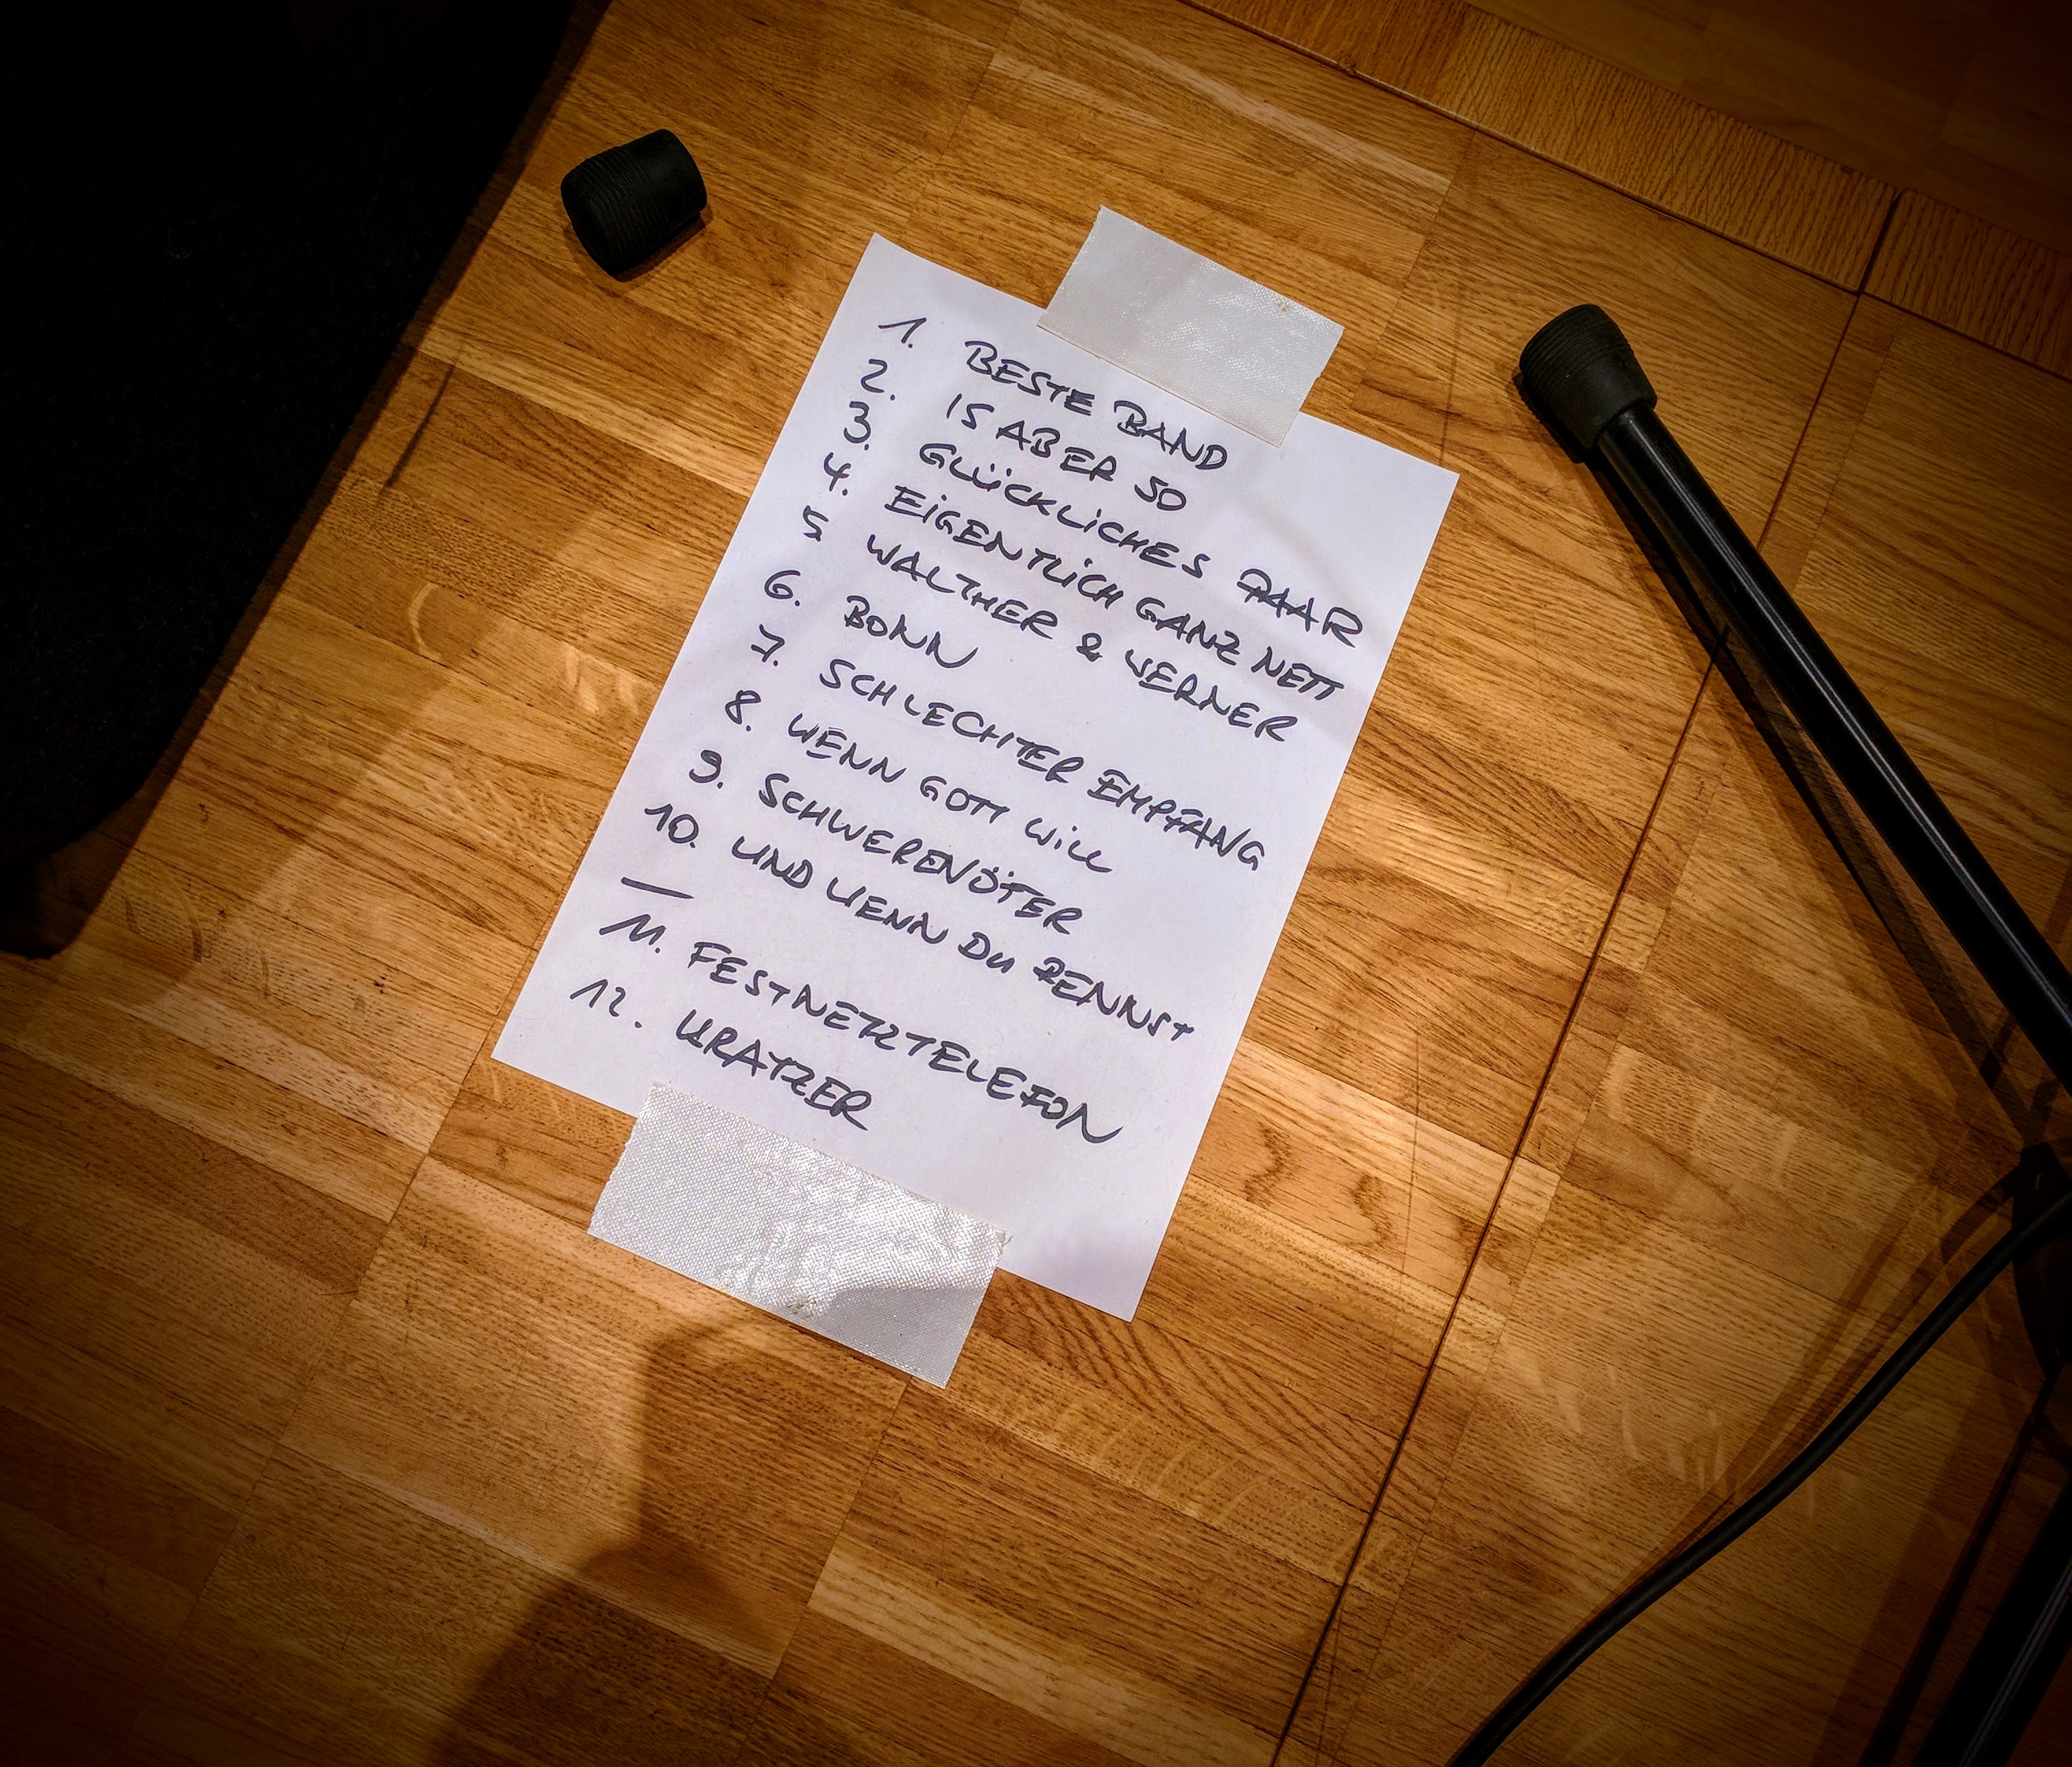 1. BESTE BAND
2. IS ABER SO
3. GLÜCKLICHES PAAR
4. EIGENTLICH GANZ NETT
5 WALTHER & WERNER
6. BONN
7. SCHLECHTER EMPFANG
8. WENN GOTT WILL
9. SCHWERENÖTER
10. UND WENN DU RENNST
—
11. FESTNETZTELEFON
12. KRATZER